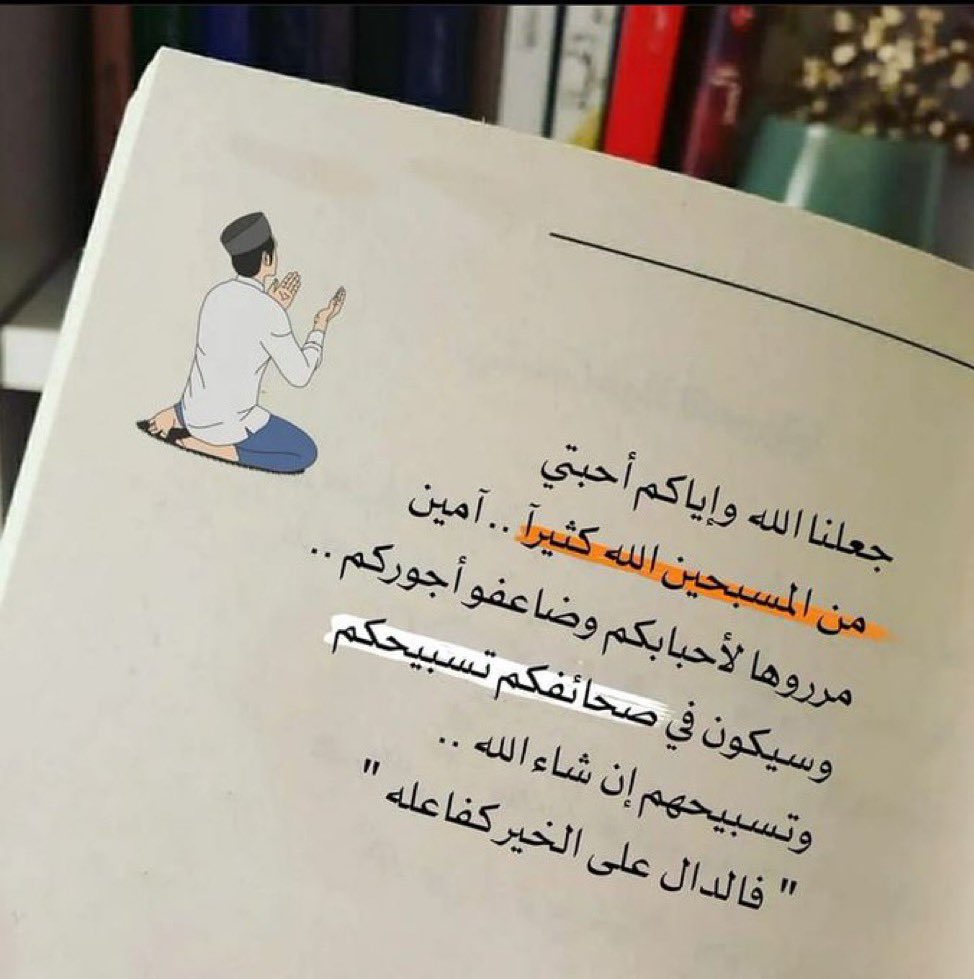 جعلنا الله وإياكم أحبتي
من المسبحين الله كثيرآ .. آمين
مرروها لأحبابكم وضاعفو أجوركم ..
وسيكون في صحائفكم تسبيحكم
وتسبيحهم إن شاء الله ..
" فالدال على الخير كفاعله "